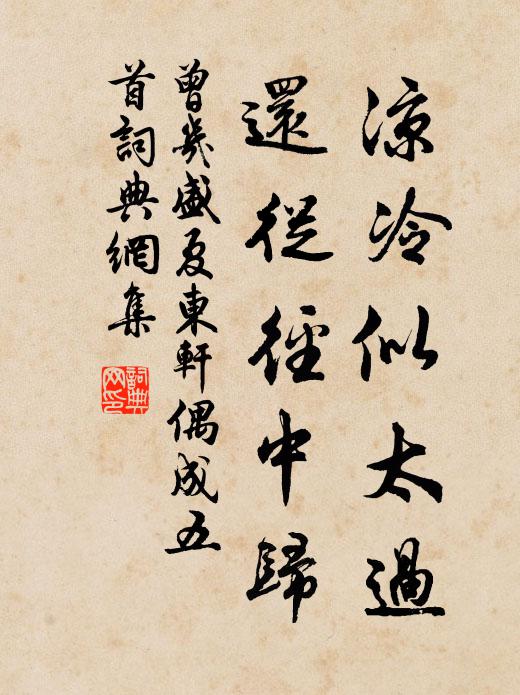 涼冷似太過
還從徑中歸
曾幾盛夏東軒偶成五
首詞典網集
詞典
网印